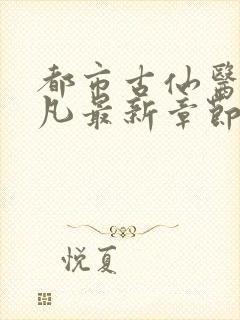 都市古仙醫
凡最新章節
悦夏